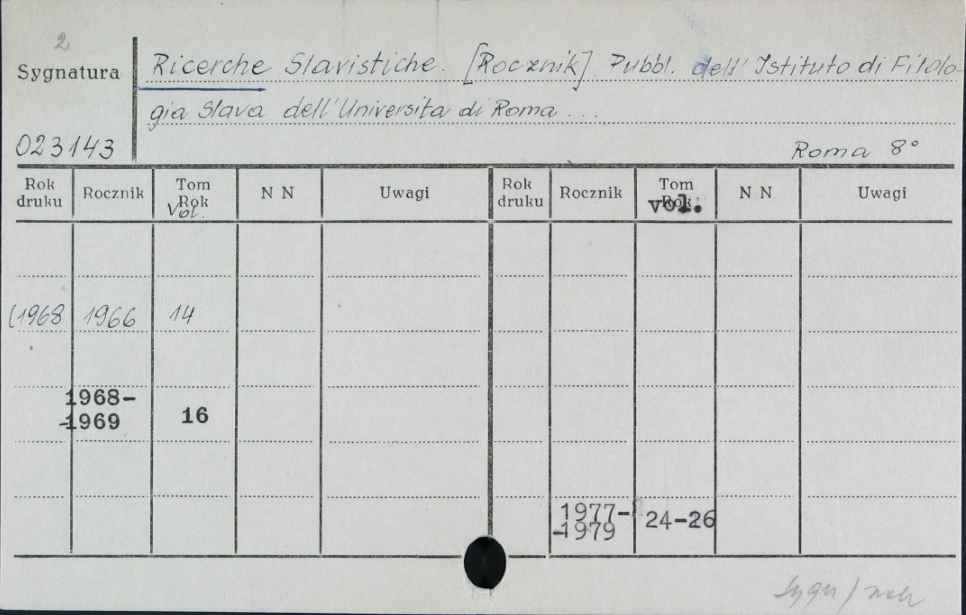 2
Sygnatura
Ricerche Slavistiche. [Rocznik]. Pubbl. dell' Istituto di Filolo-
gia Slava dell' Universita di Roma ...
023143
Roma 8°
Rok druku Rocznik Tom Rok Vol. N N Uwagi Rok druku Rocznik Tom Rok vol. N N Uwagi
(1968 1966 14
1968-
-1969 16
1977-
-1979 24-26